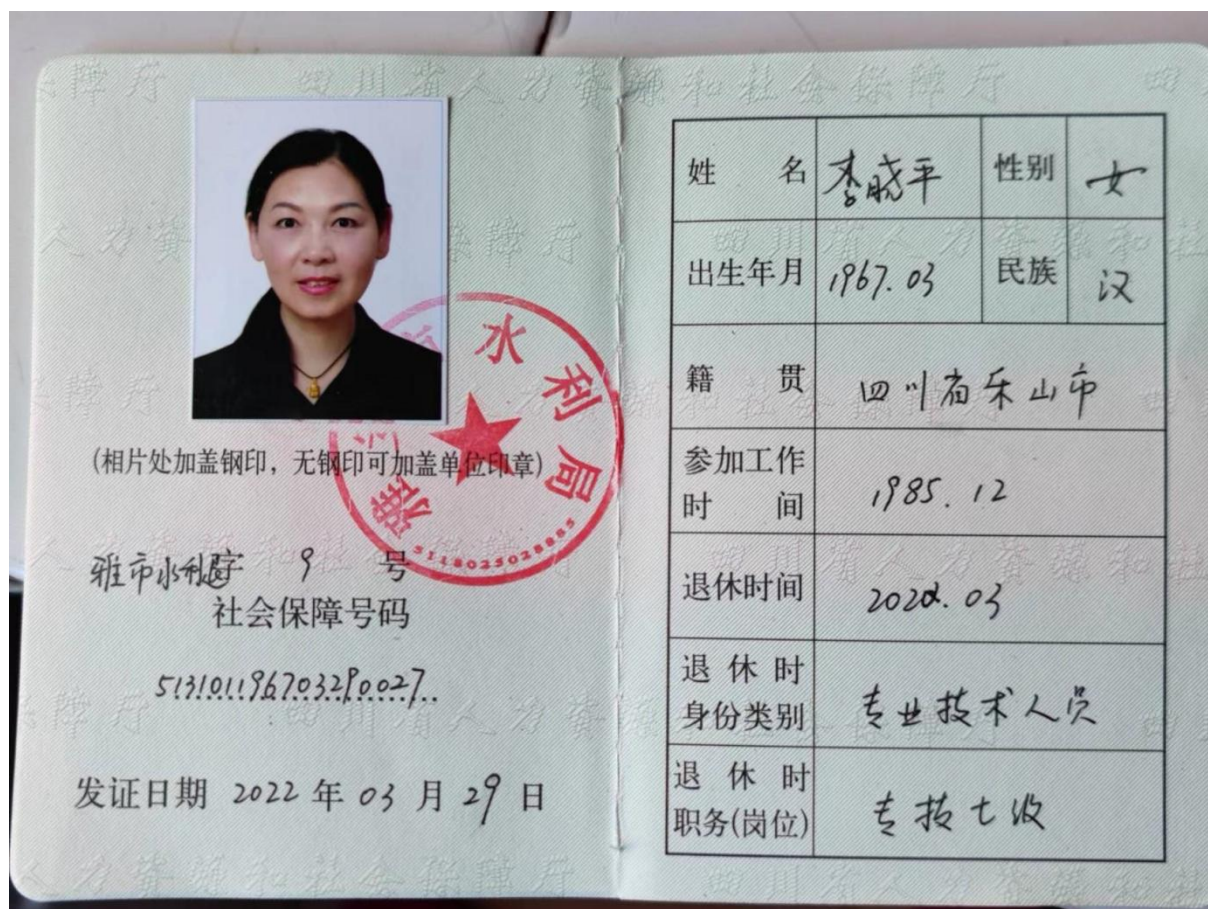 四川省人力资源和社会保障厅
水利局
雅
5118025028885
(相片处加盖钢印，无钢印可加盖单位印章)
雅市水利字 9 号
社会保障号码
513101196703290027
发证日期 2022 年 03 月 29 日
姓名 李晓平 性别 女
出生年月 1967.03 民族 汉
籍贯 四川省乐山市
参加工作
时间 1985.12
退休时间 2022.03
退休时
身份类别 专业技术人员
退休时
职务(岗位) 专技七级